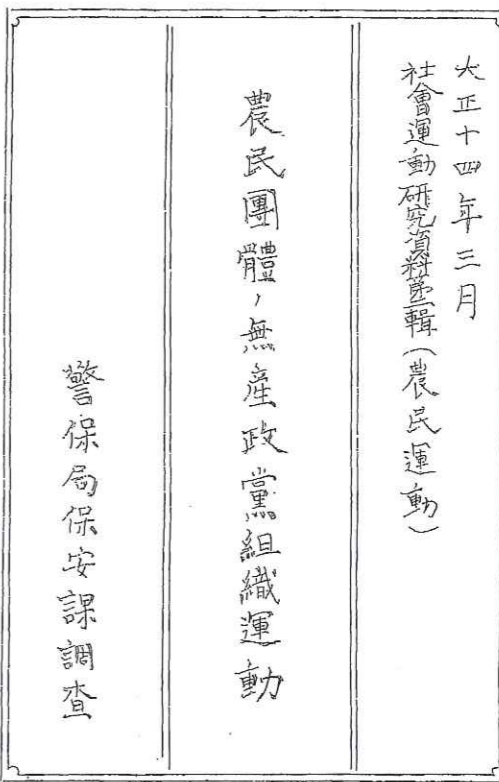 大正十四年三月
社會運動研究資料第一輯(農民運動)
農民團體ノ無產政黨組織運動
警保局保安課調查